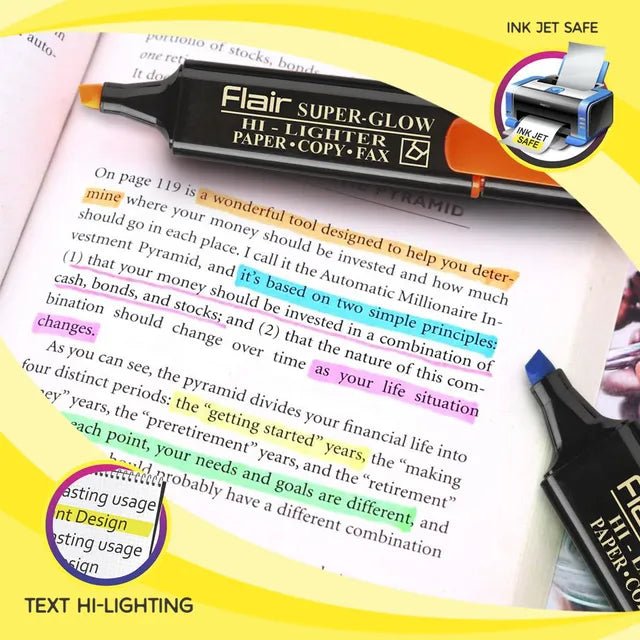 INK JET SAFE
INK JET
SAFE
portfolio of stocks, bonds,
auto-
one
It do
Flair SUPER-GLOW
HI - LIGHTER
PAPER • COPY • FAX
PYRAMID
On page 119 is a wonderful tool designed to help you deter-
mine where your money should be invested and how much
should go in each place. I call it the Automatic Millionaire In-
vestment Pyramid, and it's based on two simple principles:
(1) that your money should be invested in a combination of
cash, bonds, and stocks; and (2) that the nature of this com-
bination should change over time as your life situation
changes.
As you can see, the pyramid divides your financial life into
four distinct periods: the "getting started" years, the "making
ney" years, the "preretirement" years, and the "retirement"
each point, your needs and goals are different, and
should probably have a different combination
Flair
HI - L
PAPER • CO
asting usage
nt Design
sting usage
sign
TEXT HI-LIGHTING